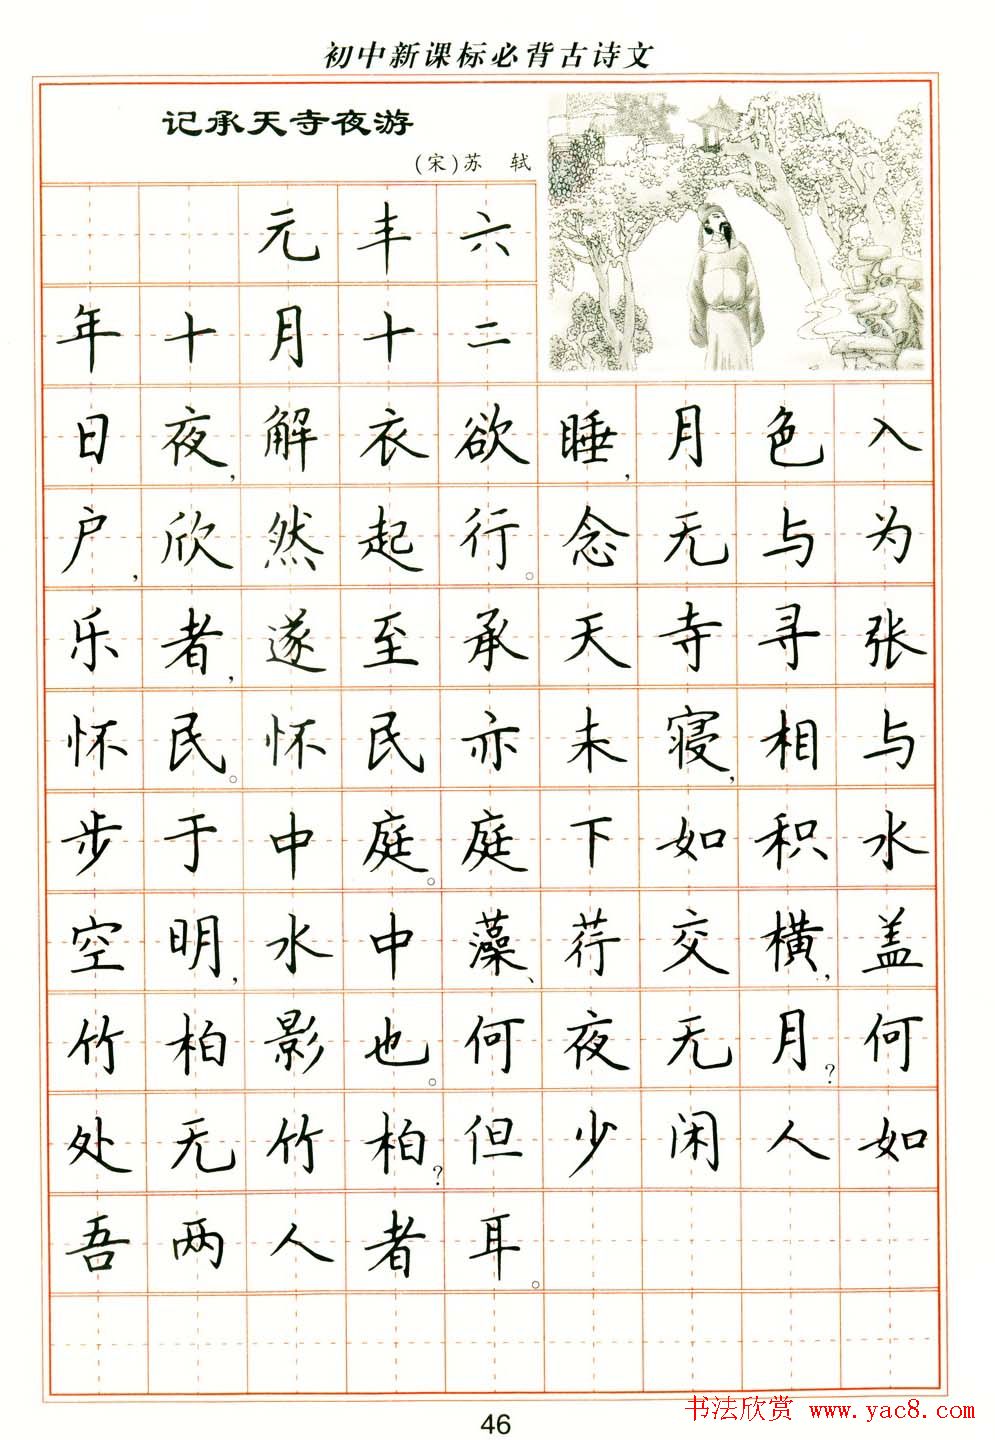 初中新课标必背古诗文
记承天寺夜游
(宋)苏 轼
元丰六
年十月十二
日夜,解衣欲睡,月色入
户,欣然起行。念无与为
乐者,遂至承天寺寻张
怀民。怀民亦未寝,相与
步于中庭。庭下如积水
空明,水中藻、荇交横,盖
竹柏影也。何夜无月?何
处无竹柏?但少闲人如
吾两人者耳。
46
书法欣赏 www.yac8.com